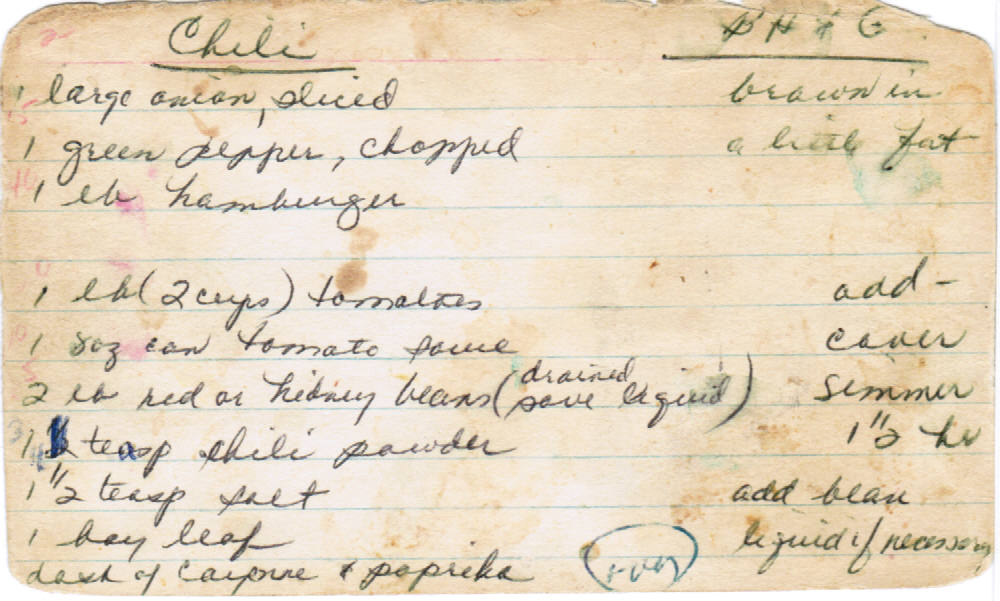 Chili BH & G
1 large onion, sliced brown in
1 green pepper, chopped a little fat
1 lb hamburger
1 lb (2 cups) tomatoes add -
1 8oz can tomato sauce cover
2 lb red or kidney beans (drained save liquid) simmer
1 teasp chili powder 1 1/2 hr
1 1/2 teasp salt add bean
1 bay leaf liquid if necessary
dash of cayenne & paprika